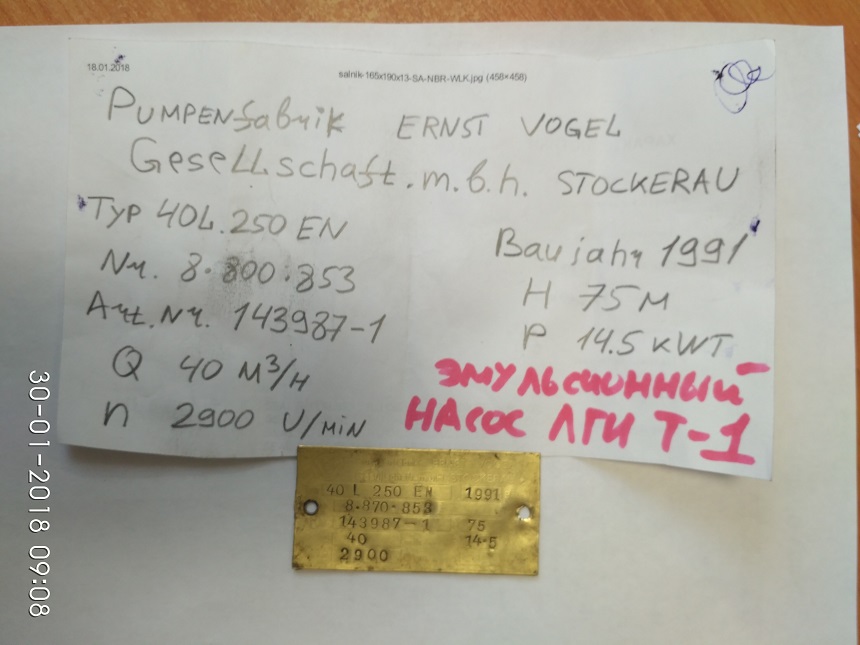 18.01.2018
salnik-165x190x13-SA-NBR-WLK.jpg (458×458)
PUMPENfabrik ERNST VOGEL
Gesellschaft.m.b.h. STOCKERAU
Typ 40L.250 EN
Baujahr 1991
Nr. 8.800.853
H 75 M
Art.Nr. 143987-1
P 14.5 KWT
Q 40 M³/H
ЭМУЛЬСИОННЫЙ
n 2900 U/MIN
НАСОС ЛГИ Т-1
40 L 250 EN 1991
8·870·853
143987-1 75
40 14·5
2900
30-01-2018 09:08